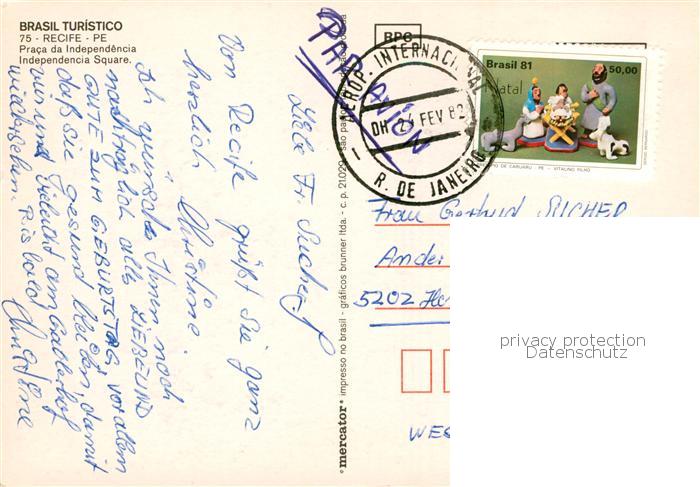 BRASIL TURÍSTICO
75 - RECIFE - PE
Praça da Independência
Independencia Square.
BPC
PAR AVION
AEROP. INTERNACIONAL
DH 24 FEV 82
R. DE JANEIRO
Brasil 81
50,00
Natal
VITALINO FILHO
Liebe Fr. Sucher,
Vom Recife grüßt Sie ganz
herzlich,
Christine.
Ich wünsche Ihnen noch
nachträglich alles LIEBE UND
GUTE ZUM GEBURTSTAG, vor allem
daß Sie gesund bleiben, damit
wir uns vielleicht am
wiedersehen. Bis bald
Christine
mercator
impresso no brasil - gráficos brunner ltda. - c.p. 21.020 - são paulo
Frau Gertrud SUCHER
Ander
5202 He
WES
privacy protection
Datenschutz